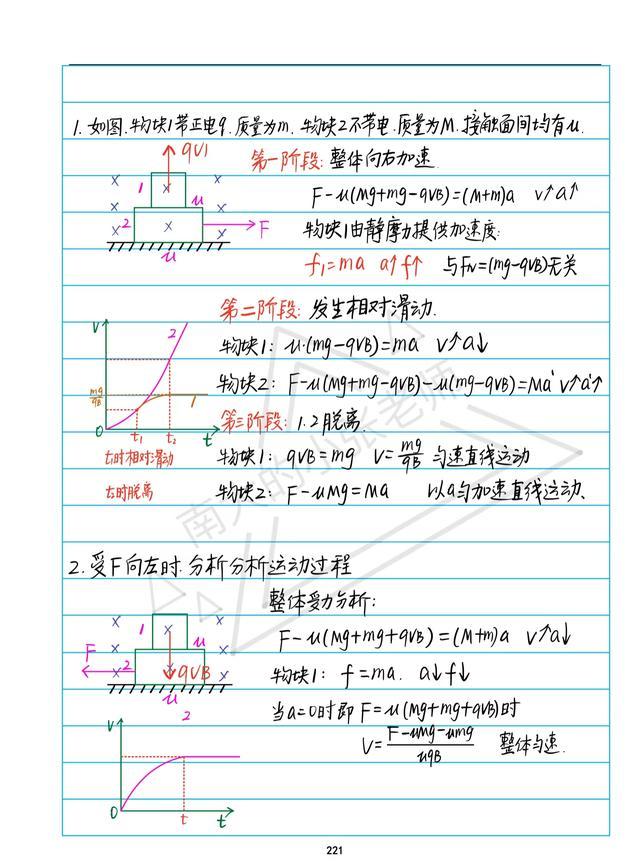 1. 如图.物块1带正电q.质量为m.物块2不带电.质量为M.接触面间均有u.
第一阶段:整体向右加速.
qV1
1 u
2 F
u
F-u(Mg+mg-qVB)=(M+m)a v↑a↑
物块1由静摩力提供加速度:
f₁=ma a↑f↑ 与FN=(mg-qVB)无关
第二阶段:发生相对滑动.
物块1: u·(mg-qVB)=ma v↑a↓
物块2: F-u(Mg+mg-qVB)-u(mg-qVB)=Ma' v↑a'↑
第三阶段: 1.2脱离.
物块1: qVB=mg V=mg/qB 匀速直线运动
物块2: F-uMg=Ma 以a匀加速直线运动、
V
2
mg/qB
1
0 t₁ t₂ t
t₁时相对滑动
t₂时脱离
2.受F向左时.分析分析运动过程
整体受力分析:
1 u
F 2 qVB
u
F-u(Mg+mg+qVB)=(M+m)a v↑a↓
物块1: f=ma. a↓f↓
当a=0时即F=u(Mg+mg+qVB)时
V=F-uMg-umg/uqB 整体匀速.
V 2
0 t t
南人的小张老师
221